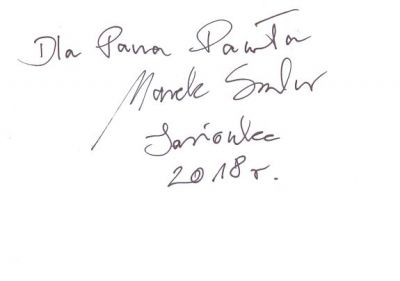 Dla Pana Pawła
Marek
Jasionka
2018 r.